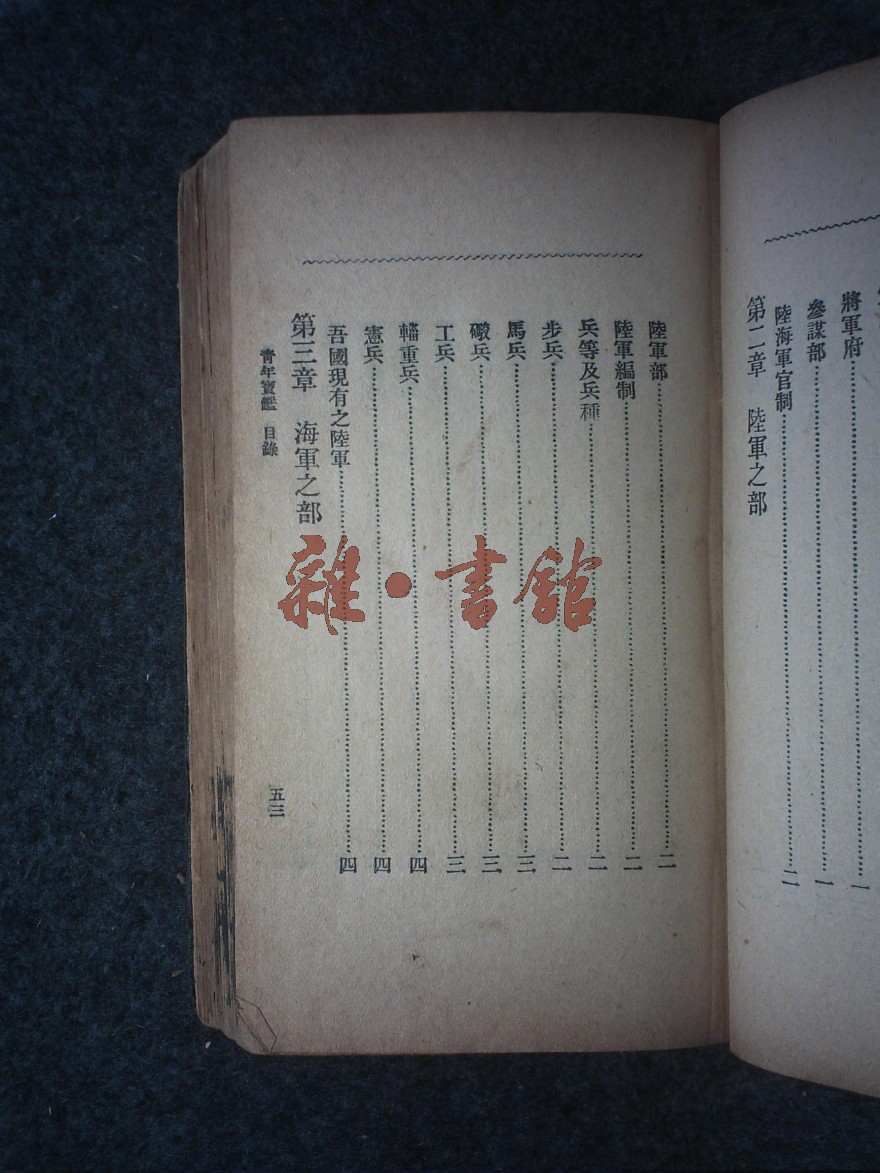 將軍府……一
參謀部……一
陸海軍官制……二
第二章 陸軍之部
陸軍部……二
陸軍編制……二
兵等及兵種……二
步兵……二
馬兵……三
礮兵……三
工兵……三
輜重兵……四
憲兵……四
吾國現有之陸軍……四
第三章 海軍之部
青年寶鑑 目錄
五三
雜·書館